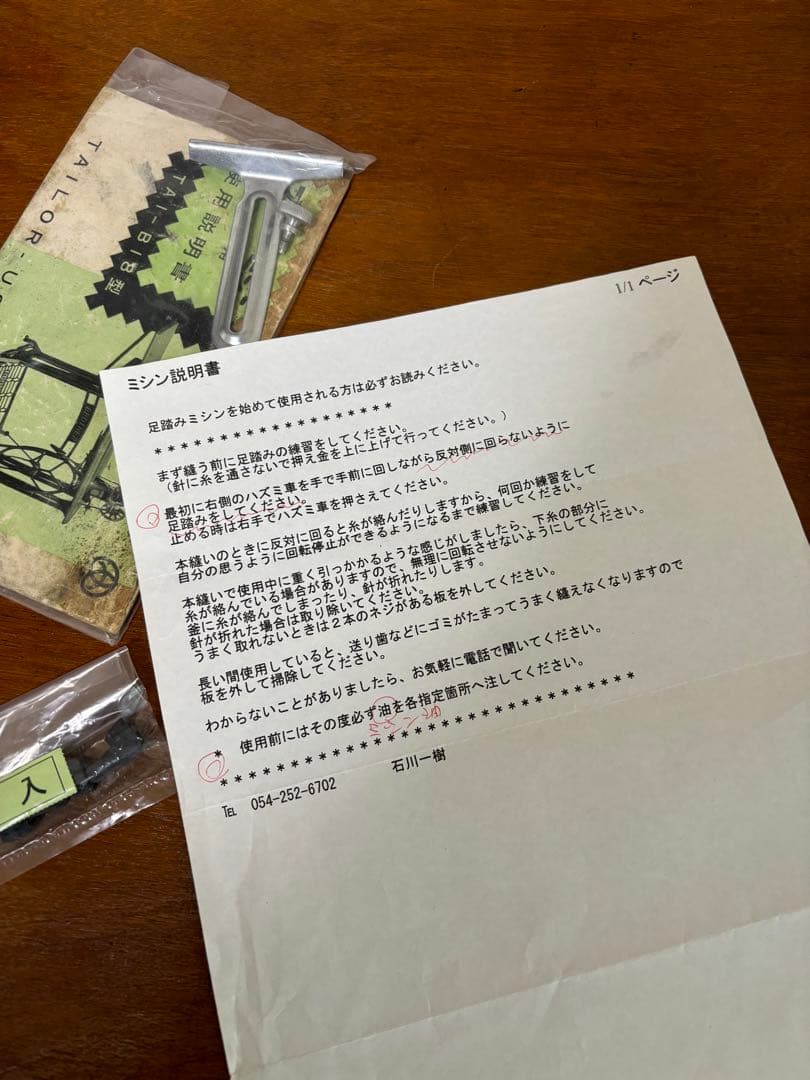 TAILOR-US
使用説明書
TAI-818型
入
1/1 ページ
ミシン説明書
足踏みミシンを始めて使用される方は必ずお読みください。
* * * * * * * * * * * * * * * * * *
まず縫う前に足踏みの練習をしてください。
(針に糸を通さないで押え金を上に上げて行ってください。)
最初に右側のハズミ車を手で手前に回しながら反対側に回らないように
足踏みをしてください。
止める時は右手でハズミ車を押さえてください。
本縫いのときに反対に回ると糸が絡んだりしますから、何回か練習をして
自分の思うように回転停止ができるようになるまで練習してください。
本縫いで使用中に重く引っかかるような感じがしましたら、下糸の部分に
糸が絡んでいる場合がありますので、無理に回転させないようにしてください。
釜に糸が絡んでしまったり、針が折れたりします。
針が折れた場合は取り除いてください。
うまく取れないときは2本のネジがある板を外してください。
長い間使用していると、送り歯などにゴミがたまってうまく縫えなくなりますので
板を外して掃除してください。
わからないことがありましたら、お気軽に電話で聞いてください。
* 使用前にはその度必ず油を各指定箇所へ注してください。
ミシン油
* * * * * * * * * * * * * * * * * * * * * * * * * * * *
℡ 054-252-6702 石川一樹